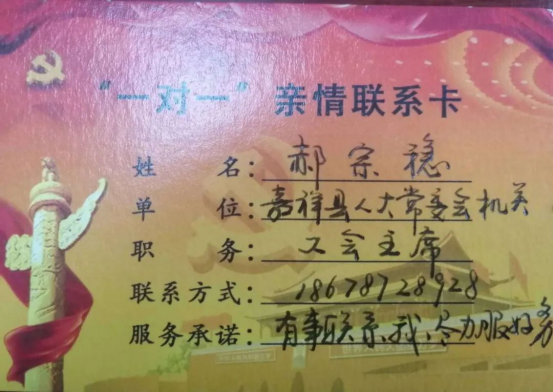 “一对一”亲情联系卡
姓 名：郝宗稳
单 位：嘉祥县人大常委会机关
职 务：工会主席
联系方式：18678728928
服务承诺：有事联系我，尽力服好务